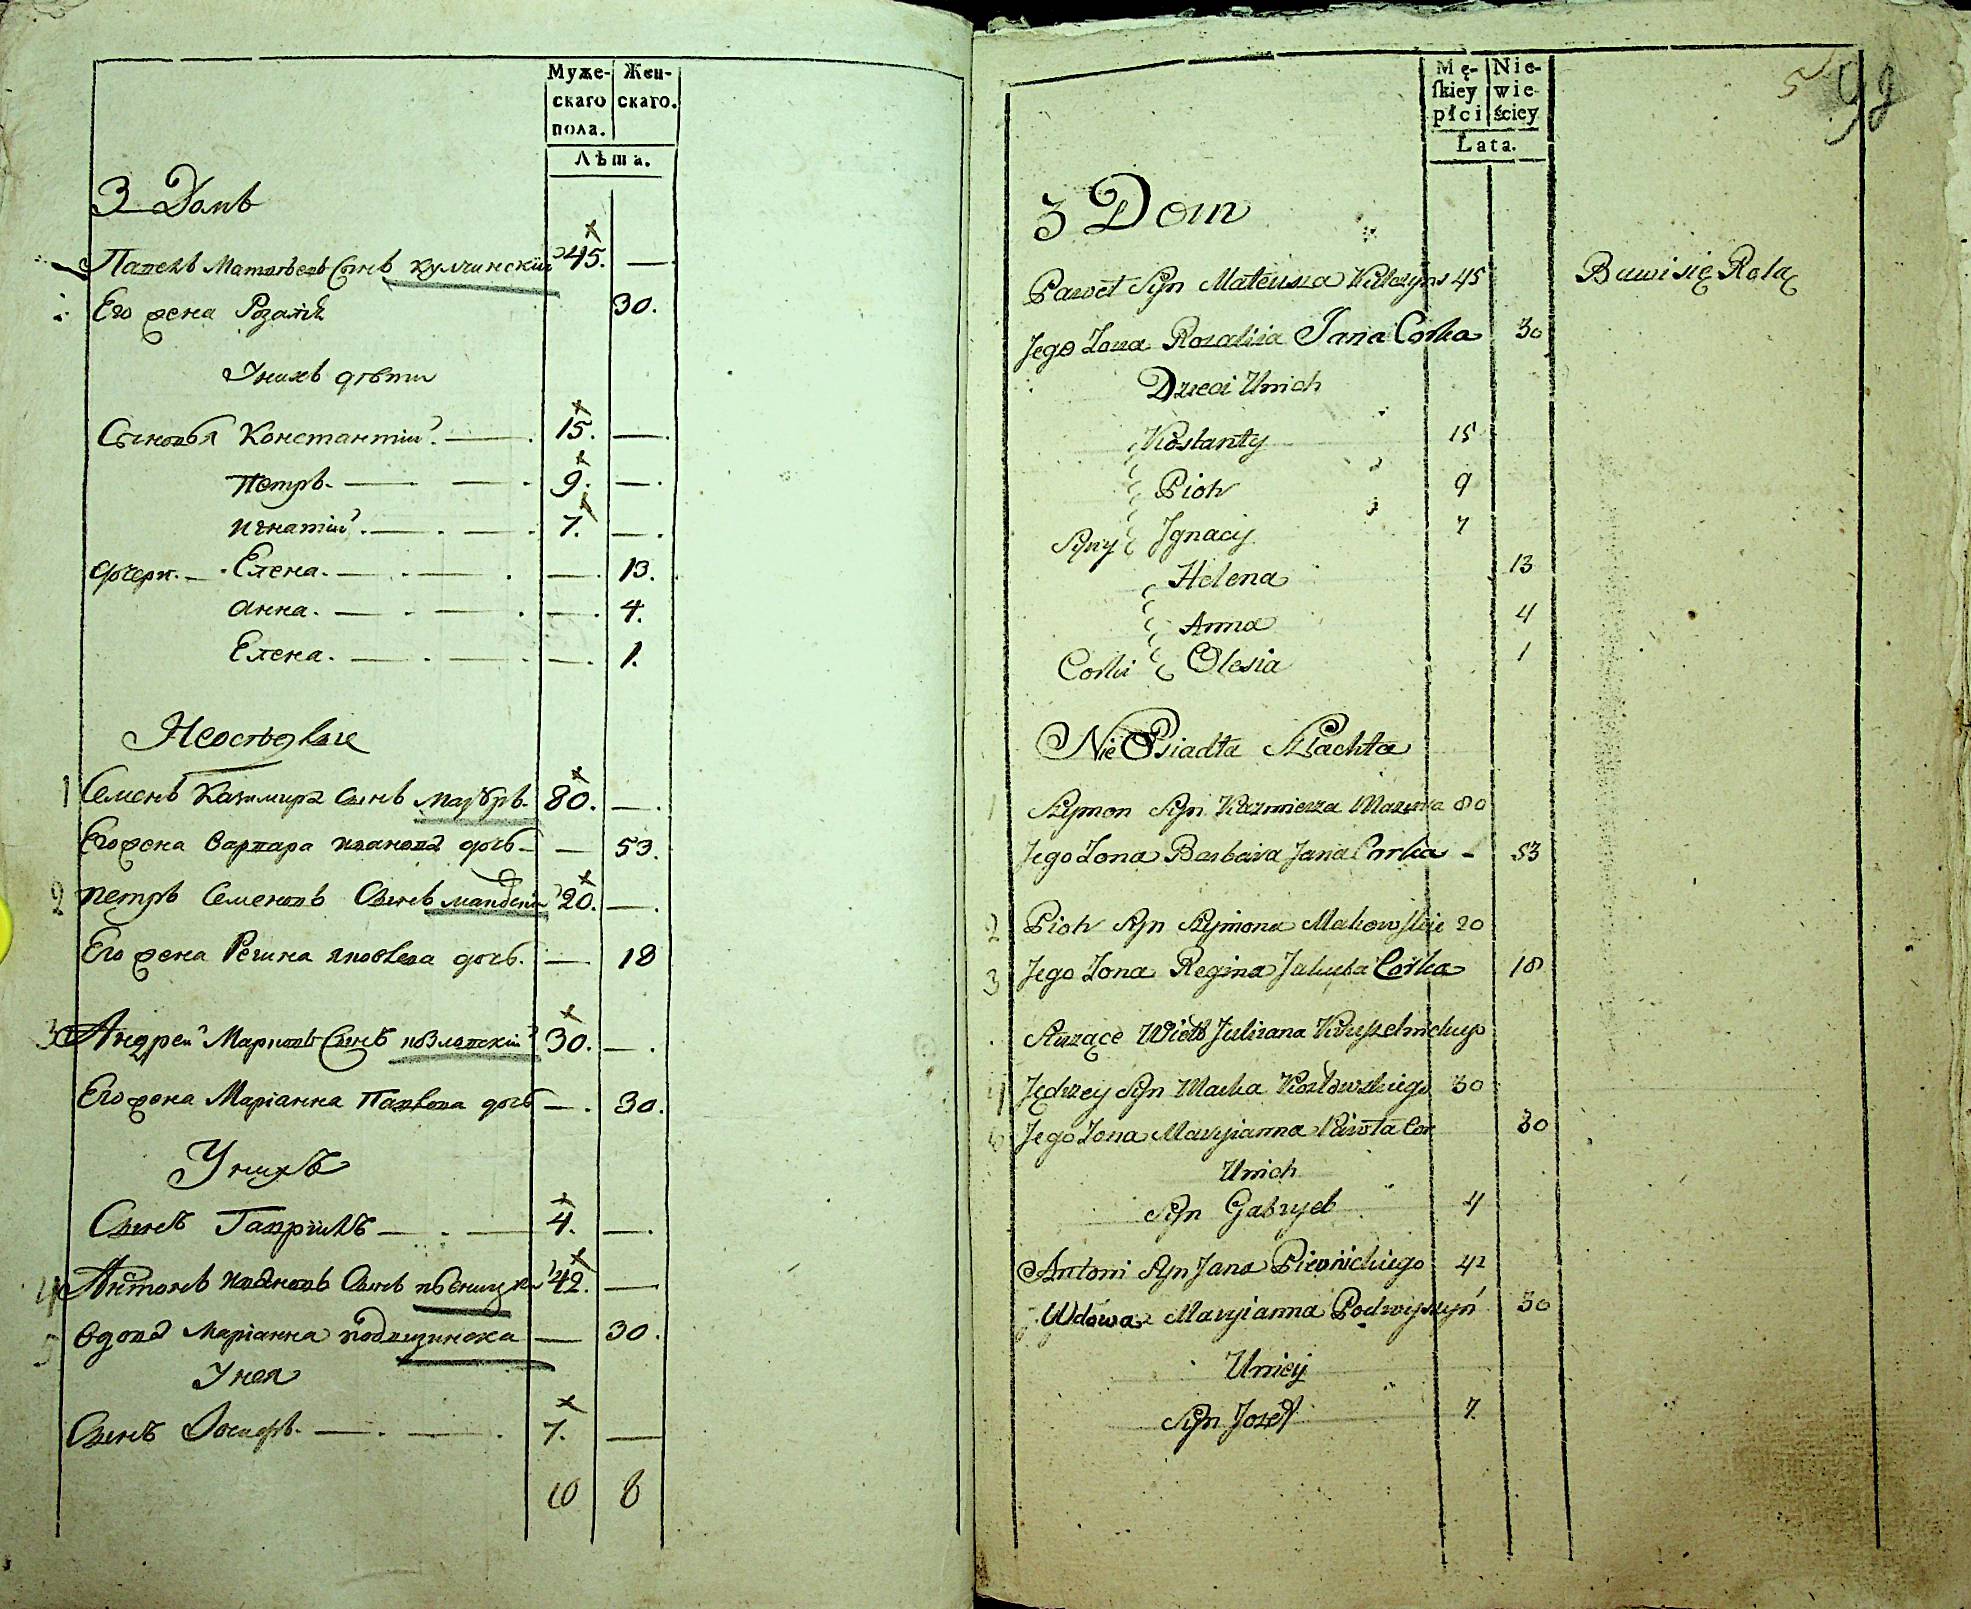 Муже-
скаго
пола.
Жен-
скаго.
Лѣта.
3 Домъ
Павелъ Матвѣевъ Сынъ Кулчинскій 45. —
Его жена Розалія 30.
У нихъ дѣти
Сыновья Константій. — 15. —
Петръ. — — 9. —
Игнатій. — — 7. —
Дочери. — Елена. — — — 13.
Анна. — — — 4.
Елена. — — — 1.
Неосѣдлые
1 Семенъ Казимира Сынъ Мазуръ. 80. —
Его жена Варвара Иванова дочь — — 53.
2 Петръ Семеновъ Сынъ 20. —
Его жена Регина Яковлева дочь. — 18
3 Андрей Марковъ Сынъ Козловскій 30. —
Его жена Маріанна Павлова дочь — 30.
У нихъ
Сынъ Гавріилъ — — 4. —
4 Антонъ Ивановъ Сынъ 42. —
5 Вдова Маріанна — 30.
У нея
Сынъ Іосифъ. — — 7. —
10 8
Mę-
skiey
płci
Nie-
wie-
ściey
Lata.
5 99
3 Dom
Paweł Syn Mateusza Kulczyns 45 Bawi się Rolą
Jego Zona Rozalija Jana Corka 30
Dzieci Unich
Kostanty 15
Piotr 9
Syny Jgnacy 7
Helena 13
Anna 4
Corki Olesia 1
Nie Osiadła Szlachta
1 Szymon Syn Kazmierza Mazura 80
Jego Zona Barbara Jana Corka - 53
2 Piotr Syn Szymona Makowskie 20
3 Jego Zona Regina Jakuba Corka 18
Służące Julijana
4 Jędrzey Syn Macka Kozłowskiego 30
Jego Zona Maryianna Pawła Cor 30
Unich
Syn Gabryel 4
Antoni Syn Jana Piwnickiego 42
Wdowa Maryianna Podwyszyń 30
Uniey
Syn Jozef 7